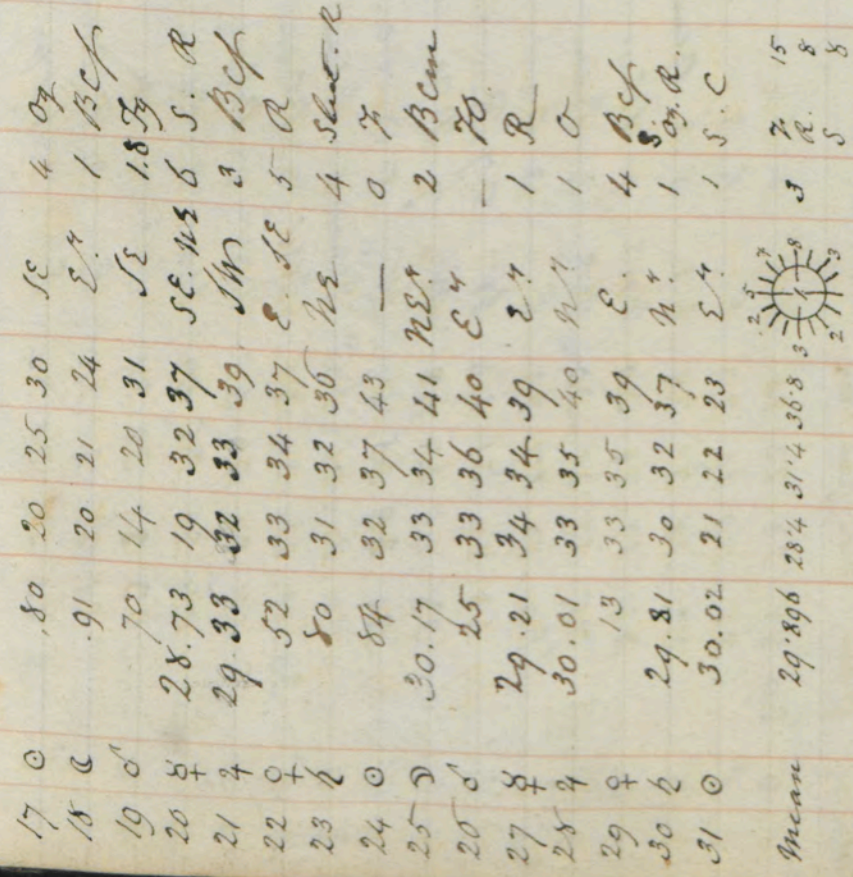 17 ☉ .80 20 25 30 SE 4 Og
18 ☾ .91 20 21 24 Ely 1 BCf
19 ♂ 70 14 20 31 SE 1.8
20 ☿ 28.73 19 32 37 SE. NE 6 S. R
21 ♃ 29.33 32 33 39 SW 3 BCf
22 ♀ 52 33 34 37 E. SE 5 R
23 ♄ 80 31 32 36 NE 4 Sleet. R
24 ☉ 84 32 37 43 — 0 F
25 ☽ 30.17 33 34 41 NEly 2 BCm
26 ♂ 25 33 36 40 Ely — FO
27 ☿ 29.21 34 34 39 Ely 1 R
28 ♃ 30.01 33 35 40 Nly 1 O
29 ♀ 13 33 35 39 E. 4 BCf
30 ♄ 29.81 30 32 37 Nly 1 S. Og. R.
31 ☉ 30.02 21 22 23 Ely 1 S. C
Mean 29.896 28.4 31.4 36.8 3 2 5 7 8 3 2 1 3 F. 15
R. 8
S 8